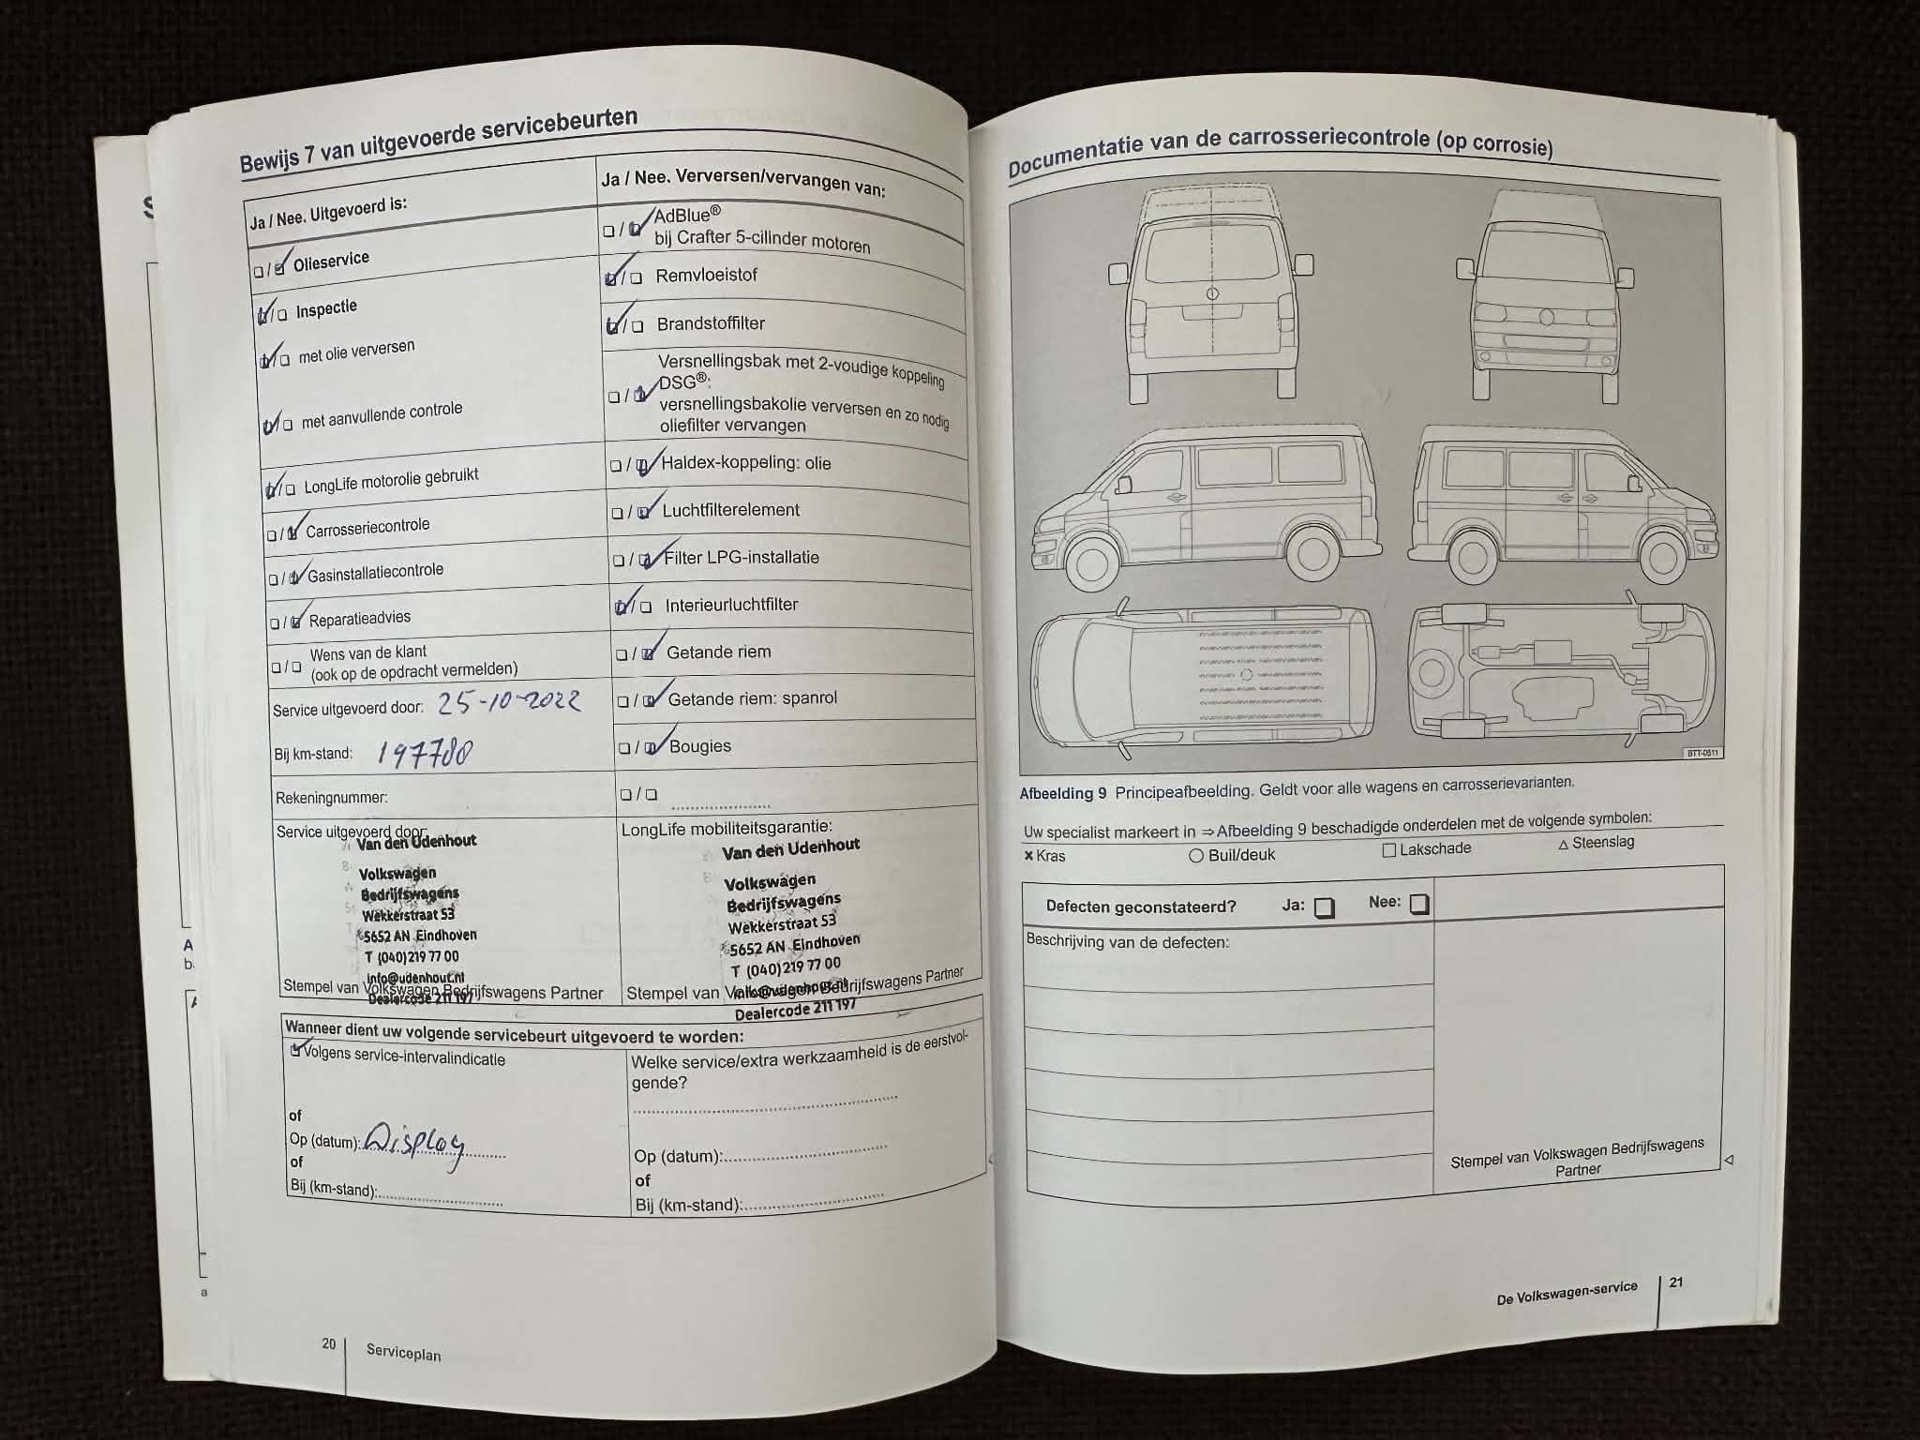 Bewijs 7 van uitgevoerde servicebeurten
Ja / Nee. Uitgevoerd is:
Olieservice
Inspectie
met olie verversen
met aanvullende controle
LongLife motorolie gebruikt
Carrosseriecontrole
Gasinstallatiecontrole
Reparatieadvies
Wens van de klant
(ook op de opdracht vermelden)
Service uitgevoerd door: 25-10-2022
Bij km-stand: 197780
Rekeningnummer:
Service uitgevoerd door:
Van den Udenhout
Volkswagen
Bedrijfswagens
Wekkerstraat 53
5652 AN Eindhoven
T (040) 219 77 00
info@udenhout.nl
Dealercode 211 197
Stempel van Volkswagen Bedrijfswagens Partner
Ja / Nee. Verversen/vervangen van:
AdBlue®
bij Crafter 5-cilinder motoren
Remvloeistof
Brandstoffilter
Versnellingsbak met 2-voudige koppeling
DSG®:
versnellingsbakolie verversen en zo nodig
oliefilter vervangen
Haldex-koppeling: olie
Luchtfilterelement
Filter LPG-installatie
Interieurluchtfilter
Getande riem
Getande riem: spanrol
Bougies
LongLife mobiliteitsgarantie:
Van den Udenhout
Volkswagen
Bedrijfswagens
Wekkerstraat 53
5652 AN Eindhoven
T (040) 219 77 00
info@udenhout.nl
Dealercode 211 197
Stempel van Volkswagen Bedrijfswagens Partner
Wanneer dient uw volgende servicebeurt uitgevoerd te worden:
Volgens service-intervalindicatie
of
Op (datum): Display
of
Bij (km-stand):
Welke service/extra werkzaamheid is de eerstvol-
gende?
Op (datum):
of
Bij (km-stand):
20 Serviceplan
Documentatie van de carrosseriecontrole (op corrosie)
BTT-0511
Afbeelding 9 Principeafbeelding. Geldt voor alle wagens en carrosserievarianten.
Uw specialist markeert in ⇒ Afbeelding 9 beschadigde onderdelen met de volgende symbolen:
x Kras ○ Buil/deuk □ Lakschade △ Steenslag
Defecten geconstateerd? Ja: Nee:
Beschrijving van de defecten:
Stempel van Volkswagen Bedrijfswagens
Partner
De Volkswagen-service 21